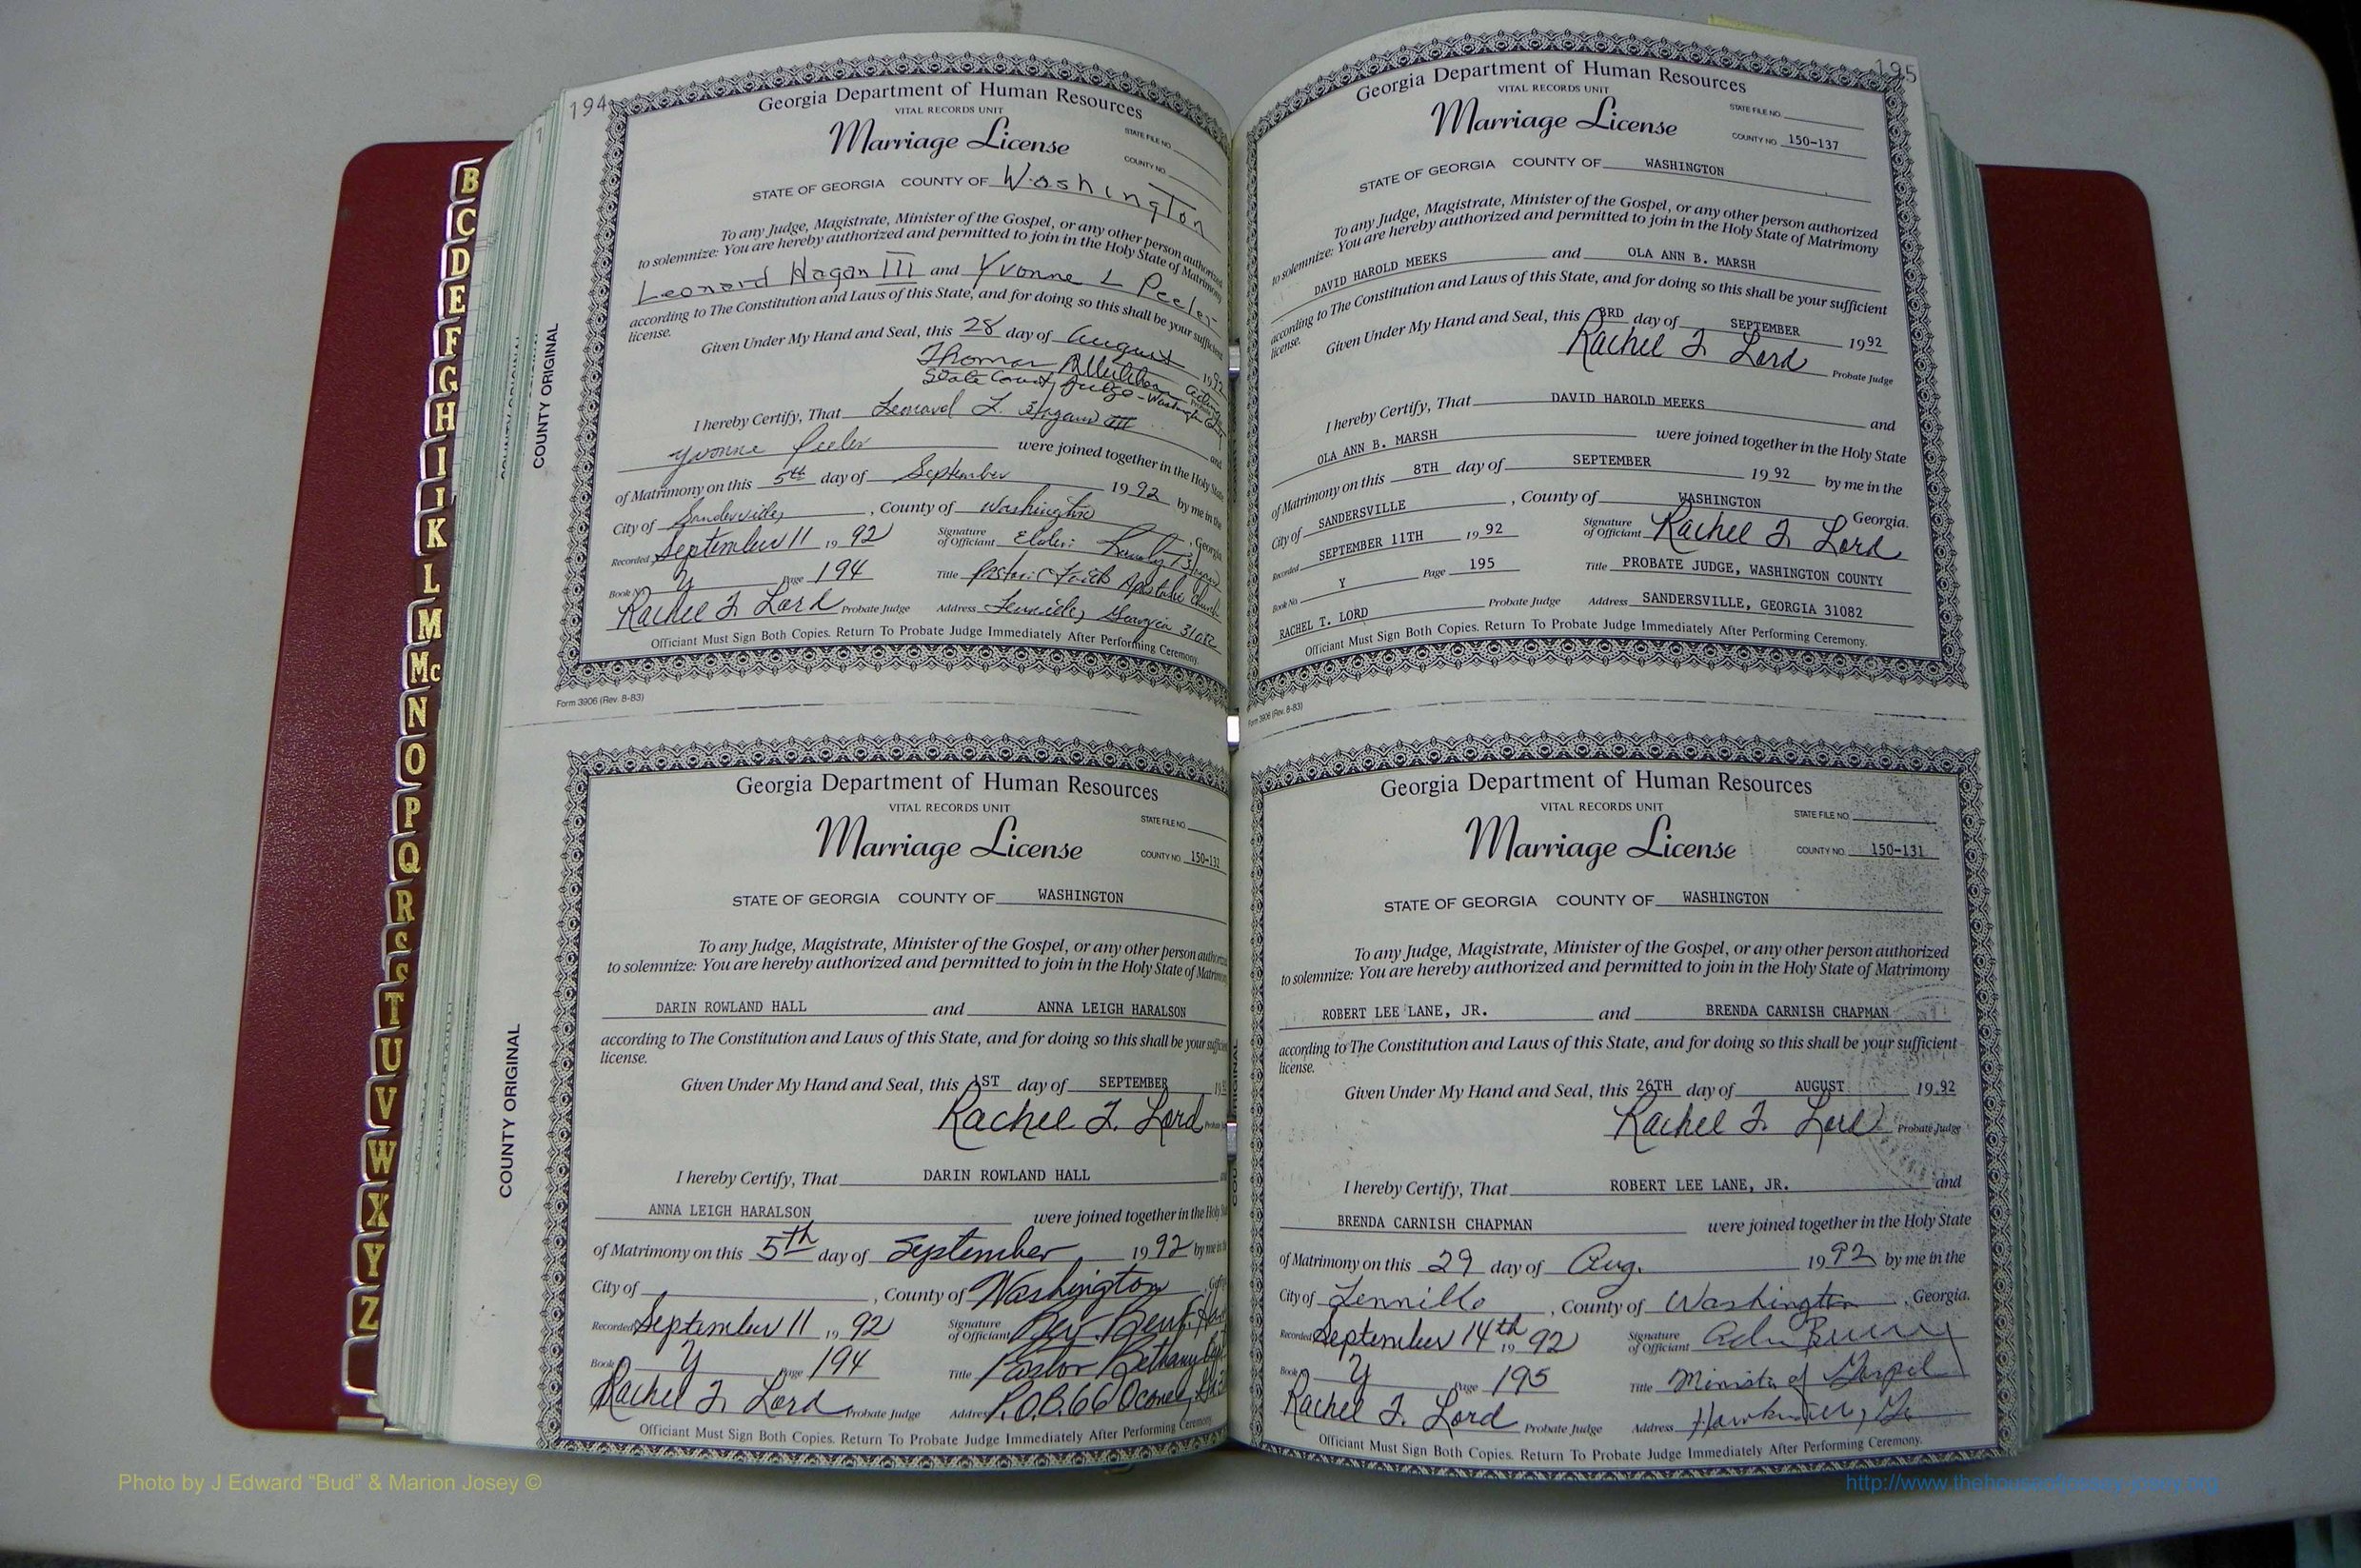 B
C
D
E
F
G
H
I
J
K
L
M
Mc
N
O
P
Q
R
S
T
U
V
W
X
Y
Z
194
COUNTY ORIGINAL
Georgia Department of Human Resources
VITAL RECORDS UNIT
Marriage License
STATE FILE NO.
COUNTY NO.
STATE OF GEORGIA COUNTY OF Washington
To any Judge, Magistrate, Minister of the Gospel, or any other person authorized
to solemnize: You are hereby authorized and permitted to join in the Holy State of Matrimony
Leonard Hagan III and Yvonne L Peeler
according to The Constitution and Laws of this State, and for doing so this shall be your sufficient
license.
Given Under My Hand and Seal, this 28 day of August 1992
Thomas
State Court Judge - Washington
I hereby Certify, That Leonard L. Hagan III and
Yvonne Peeler were joined together in the Holy State
of Matrimony on this 5th day of September 1992 by me in the
City of Sandersville, County of Washington, Georgia
Recorded September 11 1992 Signature of Officiant Elder:
Book No. Y Page 194 Title Pastor: Faith Apostolic Church
Rachel T. Lord Probate Judge Address Tennille, Georgia
Officiant Must Sign Both Copies. Return To Probate Judge Immediately After Performing Ceremony.
Form 3906 (Rev. 8-83)
COUNTY ORIGINAL
Georgia Department of Human Resources
VITAL RECORDS UNIT
Marriage License
STATE FILE NO.
COUNTY NO. 150-132
STATE OF GEORGIA COUNTY OF WASHINGTON
To any Judge, Magistrate, Minister of the Gospel, or any other person
to solemnize: You are hereby authorized and permitted to join in the Holy State of
DARIN ROWLAND HALL and ANNA LEIGH HARALSON
according to The Constitution and Laws of this State, and for doing so this shall be your
license.
Given Under My Hand and Seal, this 1ST day of SEPTEMBER
Rachel T. Lord
I hereby Certify, That DARIN ROWLAND HALL
ANNA LEIGH HARALSON were joined together in the Holy
of Matrimony on this 5th day of September 1992 by me in
City of , County of Washington
Recorded September 11 1992 Signature of Officiant
Book Y Page 194 Title Pastor Bethany
Rachel T. Lord Probate Judge Address P.O.B. 66 Oconee,
Officiant Must Sign Both Copies. Return To Probate Judge Immediately After Performing Ceremony.
195
Georgia Department of Human Resources
VITAL RECORDS UNIT
Marriage License
STATE FILE NO.
COUNTY NO. 150-137
STATE OF GEORGIA COUNTY OF WASHINGTON
To any Judge, Magistrate, Minister of the Gospel, or any other person authorized
to solemnize: You are hereby authorized and permitted to join in the Holy State of Matrimony
DAVID HAROLD MEEKS and OLA ANN B. MARSH
according to The Constitution and Laws of this State, and for doing so this shall be your sufficient
license.
Given Under My Hand and Seal, this 3RD day of SEPTEMBER 1992
Rachel T. Lord Probate Judge
I hereby Certify, That DAVID HAROLD MEEKS and
OLA ANN B. MARSH were joined together in the Holy State
of Matrimony on this 8TH day of SEPTEMBER 1992 by me in the
City of SANDERSVILLE, County of WASHINGTON Georgia.
Recorded SEPTEMBER 11TH 1992 Signature of Officiant Rachel T. Lord
Book No. Y Page 195 Title PROBATE JUDGE, WASHINGTON COUNTY
RACHEL T. LORD Probate Judge Address SANDERSVILLE, GEORGIA 31082
Officiant Must Sign Both Copies. Return To Probate Judge Immediately After Performing Ceremony.
Form 3906 (Rev. 8-83)
Georgia Department of Human Resources
VITAL RECORDS UNIT
Marriage License
STATE FILE NO.
COUNTY NO. 150-131
STATE OF GEORGIA COUNTY OF WASHINGTON
To any Judge, Magistrate, Minister of the Gospel, or any other person authorized
to solemnize: You are hereby authorized and permitted to join in the Holy State of Matrimony
ROBERT LEE LANE, JR. and BRENDA CARNISH CHAPMAN
according to The Constitution and Laws of this State, and for doing so this shall be your sufficient
license.
Given Under My Hand and Seal, this 26TH day of AUGUST 1992
Rachel T. Lord Probate Judge
I hereby Certify, That ROBERT LEE LANE, JR. and
BRENDA CARNISH CHAPMAN were joined together in the Holy State
of Matrimony on this 29 day of Aug. 1992 by me in the
City of Tennille, County of Washington, Georgia.
Recorded September 14th 1992 Signature of Officiant
Book Y Page 195 Title Minister of Gospel
Rachel T. Lord Probate Judge Address
Officiant Must Sign Both Copies. Return To Probate Judge Immediately After Performing Ceremony.
Photo by J Edward “Bud” & Marion Josey ©